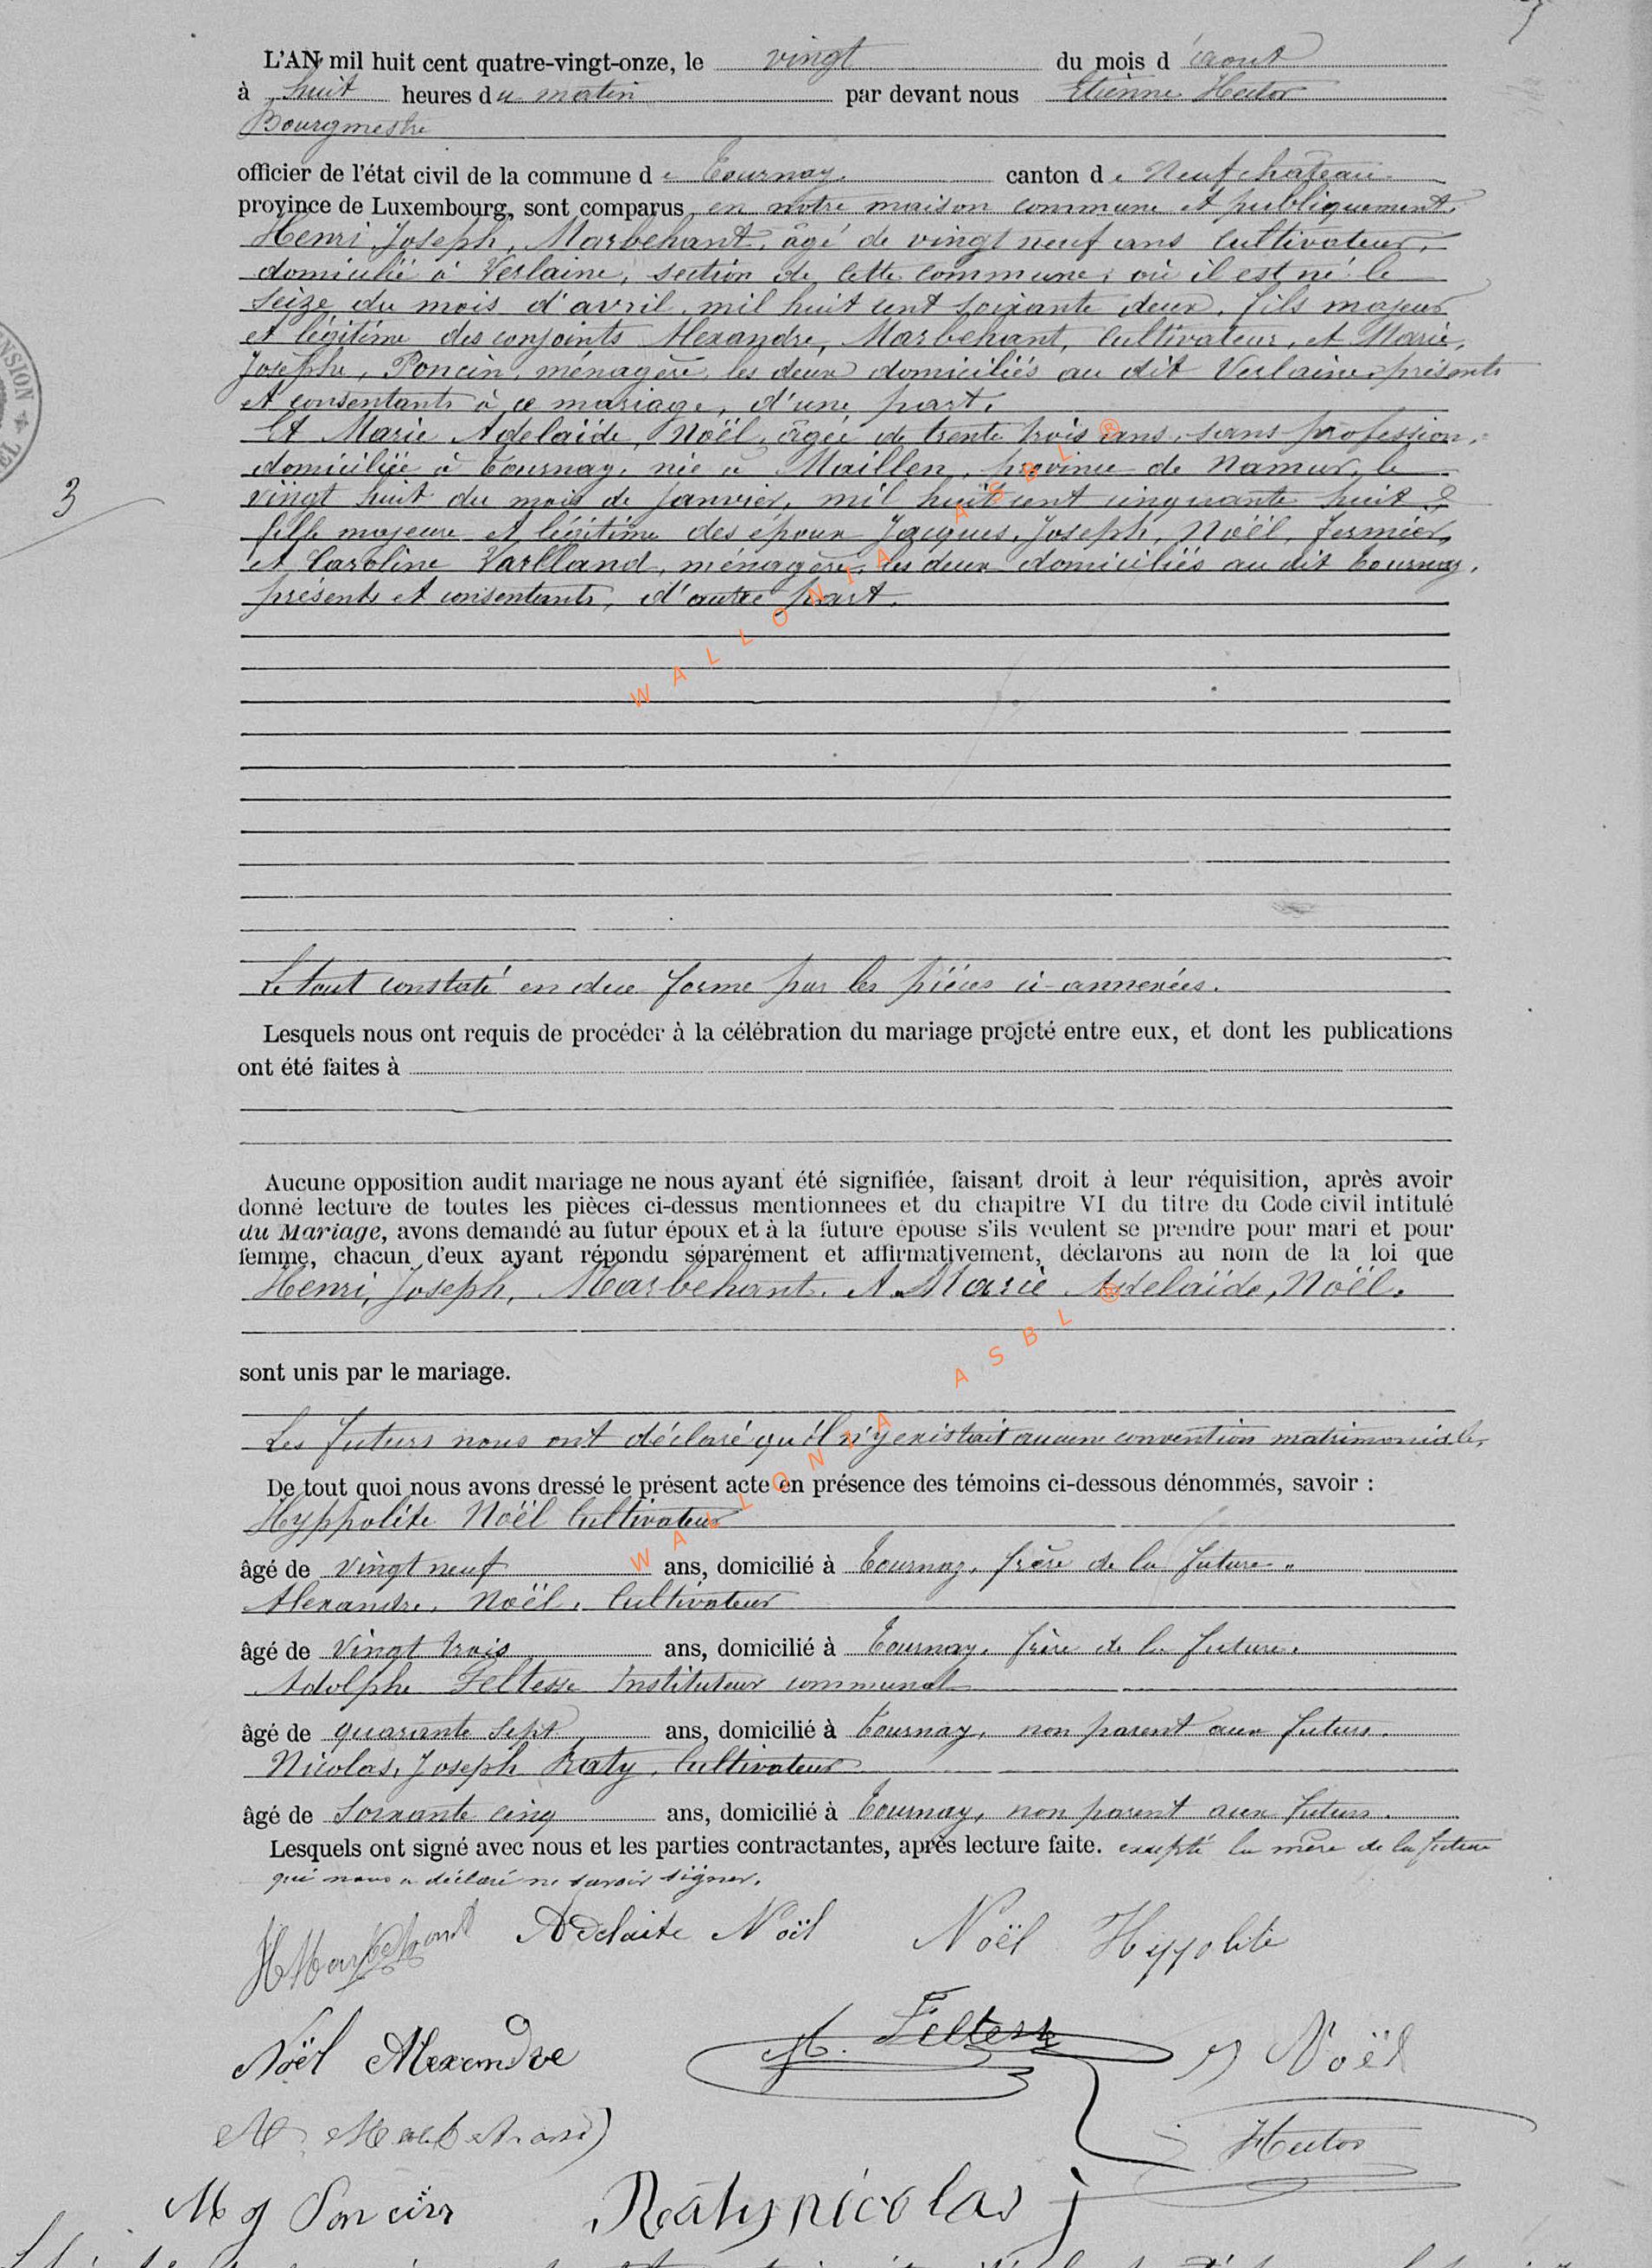 L'AN mil huit cent quatre-vingt-onze, le vingt du mois d'aout
à huit heures du matin par devant nous Etienne Hector
Bourgmestre
officier de l'état civil de la commune de Tournay. canton de Neufchâteau
province de Luxembourg, sont comparus en notre maison commune et publiquement.
Henri, Joseph, Marbehant, âgé de vingt neuf ans cultivateur,
domicilié à Verlaine, section de cette commune, où il est né le
seize du mois d'avril, mil huit cent soixante deux, fils majeur
et légitime des conjoints Alexandre, Marbehant, cultivateur, et Marie,
Josèphe, Poncin, ménagère, les deux domiciliés au dit Verlaine, présents
et consentants à ce mariage, d'une part.
Et Marie Adelaïde, Noël, âgée de trente trois ans, sans profession,
domiciliée à Tournay, née à Maillen, province de Namur, le
vingt huit du mois de janvier, mil huit cent cinquante huit
fille majeure et légitime des époux Jacques, Joseph, Noël, fermier,
et Caroline Varlland, ménagère, les deux domiciliés au dit Tournay,
présents et consentants, d'autre part.
WALLONIA ASBL ®
3
Le tout constaté en due forme par les pièces ci-annexées.
Lesquels nous ont requis de procéder à la célébration du mariage projeté entre eux, et dont les publications
ont été faites à
Aucune opposition audit mariage ne nous ayant été signifiée, faisant droit à leur réquisition, après avoir
donné lecture de toutes les pièces ci-dessus mentionnees et du chapitre VI du titre du Code civil intitulé
du Mariage, avons demandé au futur époux et à la future épouse s'ils veulent se prendre pour mari et pour
femme, chacun d'eux ayant répondu séparément et affirmativement, déclarons au nom de la loi que
Henri, Joseph, Marbehant. et Marie Adelaïde, Noël.
sont unis par le mariage.
Les futurs nous ont déclaré qu'il n'y existait aucune convention matrimoniale.
WALLONIA ASBL ®
De tout quoi nous avons dressé le présent acte en présence des témoins ci-dessous dénommés, savoir :
Hyppolite Noël Cultivateur
âgé de vingt neuf ans, domicilié à Tournay, frère de la future.
Alexandre, Noël, Cultivateur
âgé de vingt trois ans, domicilié à Tournay. frère de la future.
Adolphe Feltesse Instituteur communal
âgé de quarante sept ans, domicilié à Tournay, non parent aux futurs.
Nicolas, Joseph Raty, Cultivateur
âgé de soixante cinq ans, domicilié à Tournay, non parent aux futurs.
Lesquels ont signé avec nous et les parties contractantes, après lecture faite. excepté la mère de la future
qui nous a déclaré ne savoir signer.
H Marbehant Adelaite Noël Noël Hyppolite
Noël Alexandre A. Feltesse J Noël
A Marbehant Hector
M J Poncin Raty nicolas j